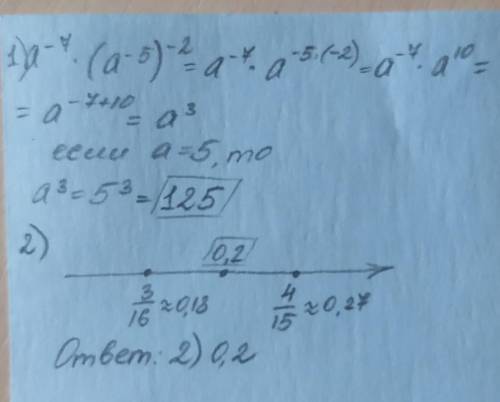 1) a⁻⁷ · (a⁻⁵)⁻² = a⁻⁷ · a⁻⁵·⁽⁻²⁾ = a⁻⁷ · a¹⁰ =
= a⁻⁷⁺¹⁰ = a³
если a = 5, то
a³ = 5³ = 125
2)
0,2
3/16 ≈ 0,18 4/15 ≈ 0,27
Ответ: 2) 0,2